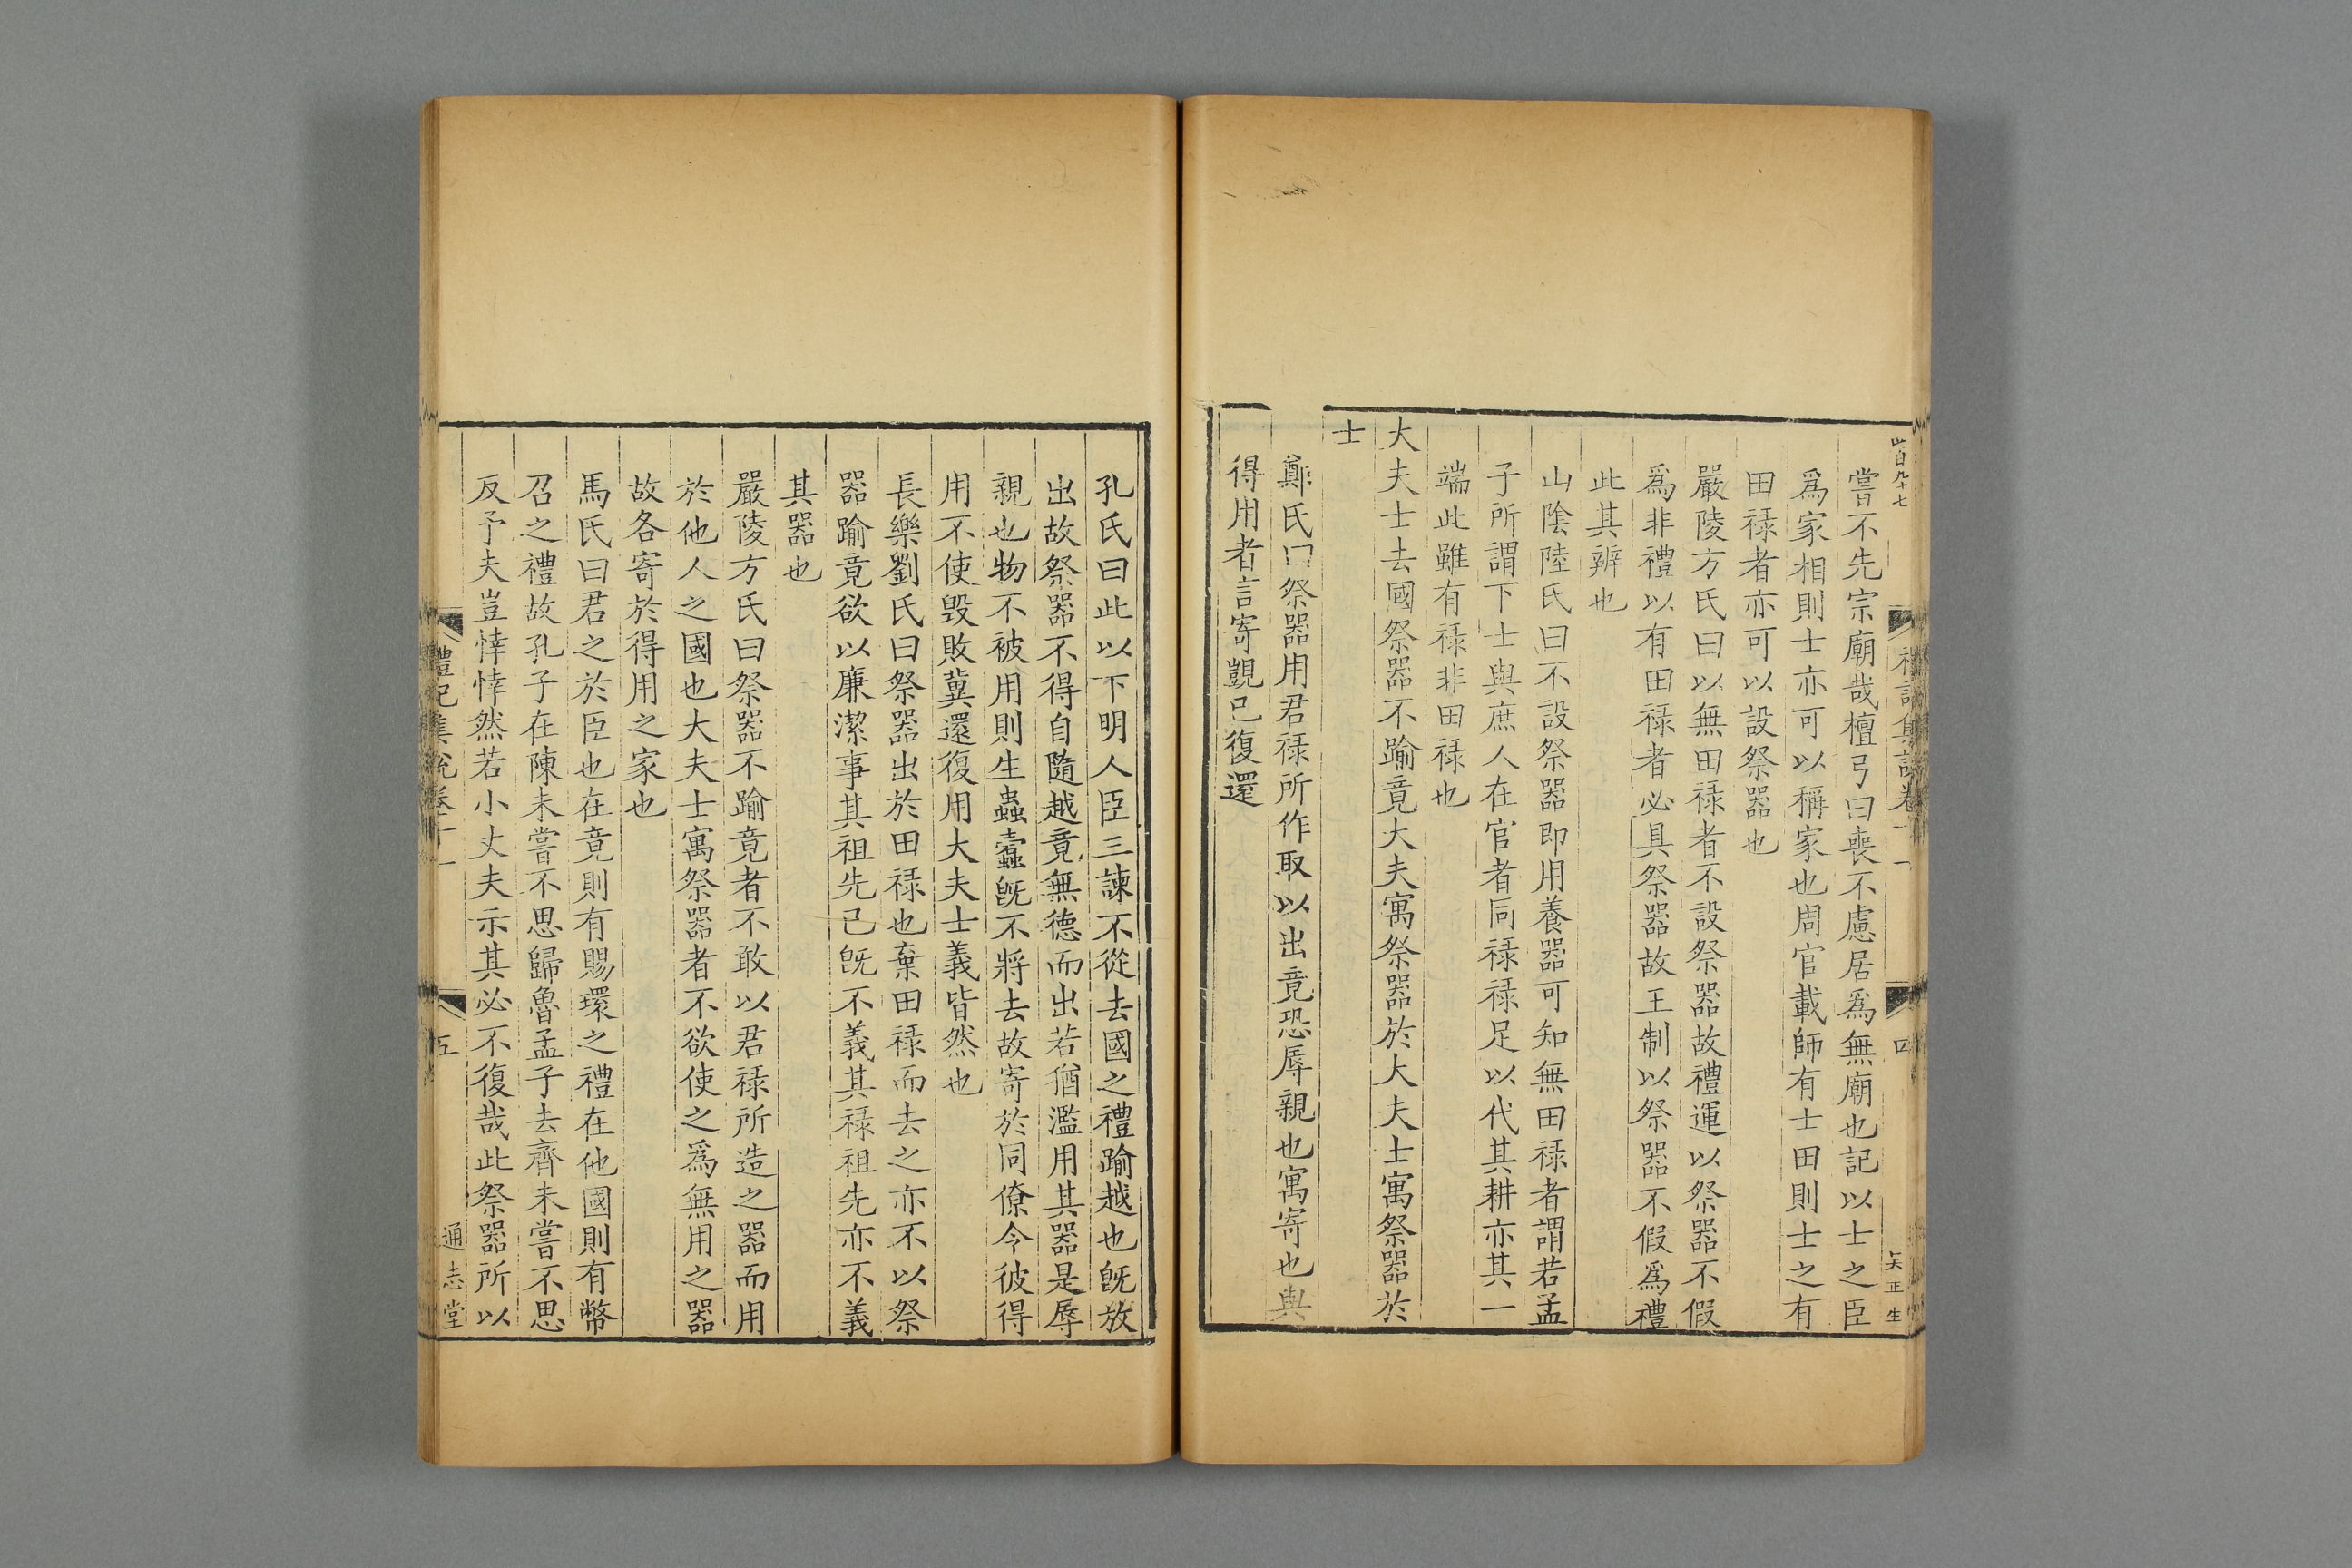 嘗不先宗廟哉檀弓曰喪不慮居爲無廟也記以士之臣
爲家相則士亦可以稱家也周官載師有士田則士之有
田禄者亦可以設祭器也
嚴陵方氏曰以無田禄者不設祭器故禮運以祭器不假
爲非禮以有田禄者必具祭器故王制以祭器不假爲禮
此其辨也
山陰陸氏曰不設祭器即用養器可知無田禄者謂若孟
子所謂下士與庶人在官者同禄禄足以代其耕亦其一
端此雖有禄非田禄也
大夫士去國祭器不踰竟大夫寓祭器於大夫士寓祭器於
士
鄭氏曰祭器用君禄所作取以出竟恐辱親也寓寄也與
得用者言寄覬已復還
孔氏曰此以下明人臣三諫不從去國之禮踰越也旣放
出故祭器不得自隨越竟無德而出若猶濫用其器是辱
親也物不被用則生蟲蠹旣不將去故寄於同僚令彼得
用不使毀敗冀還復用大夫士義皆然也
長樂劉氏曰祭器出於田禄也棄田禄而去之亦不以祭
器踰竟欲以廉潔事其祖先已旣不義其禄祖先亦不義
其器也
嚴陵方氏曰祭器不踰竟者不敢以君禄所造之器而用
於他人之國也大夫士寓祭器者不欲使之爲無用之器
故各寄於得用之家也
馬氏曰君之於臣也在竟則有賜環之禮在他國則有幣
召之禮故孔子在陳未嘗不思歸魯孟子去齊未嘗不思
反予夫豈悻悻然若小丈夫示其必不復哉此祭器所以
禮記集說卷十一
五
通志堂